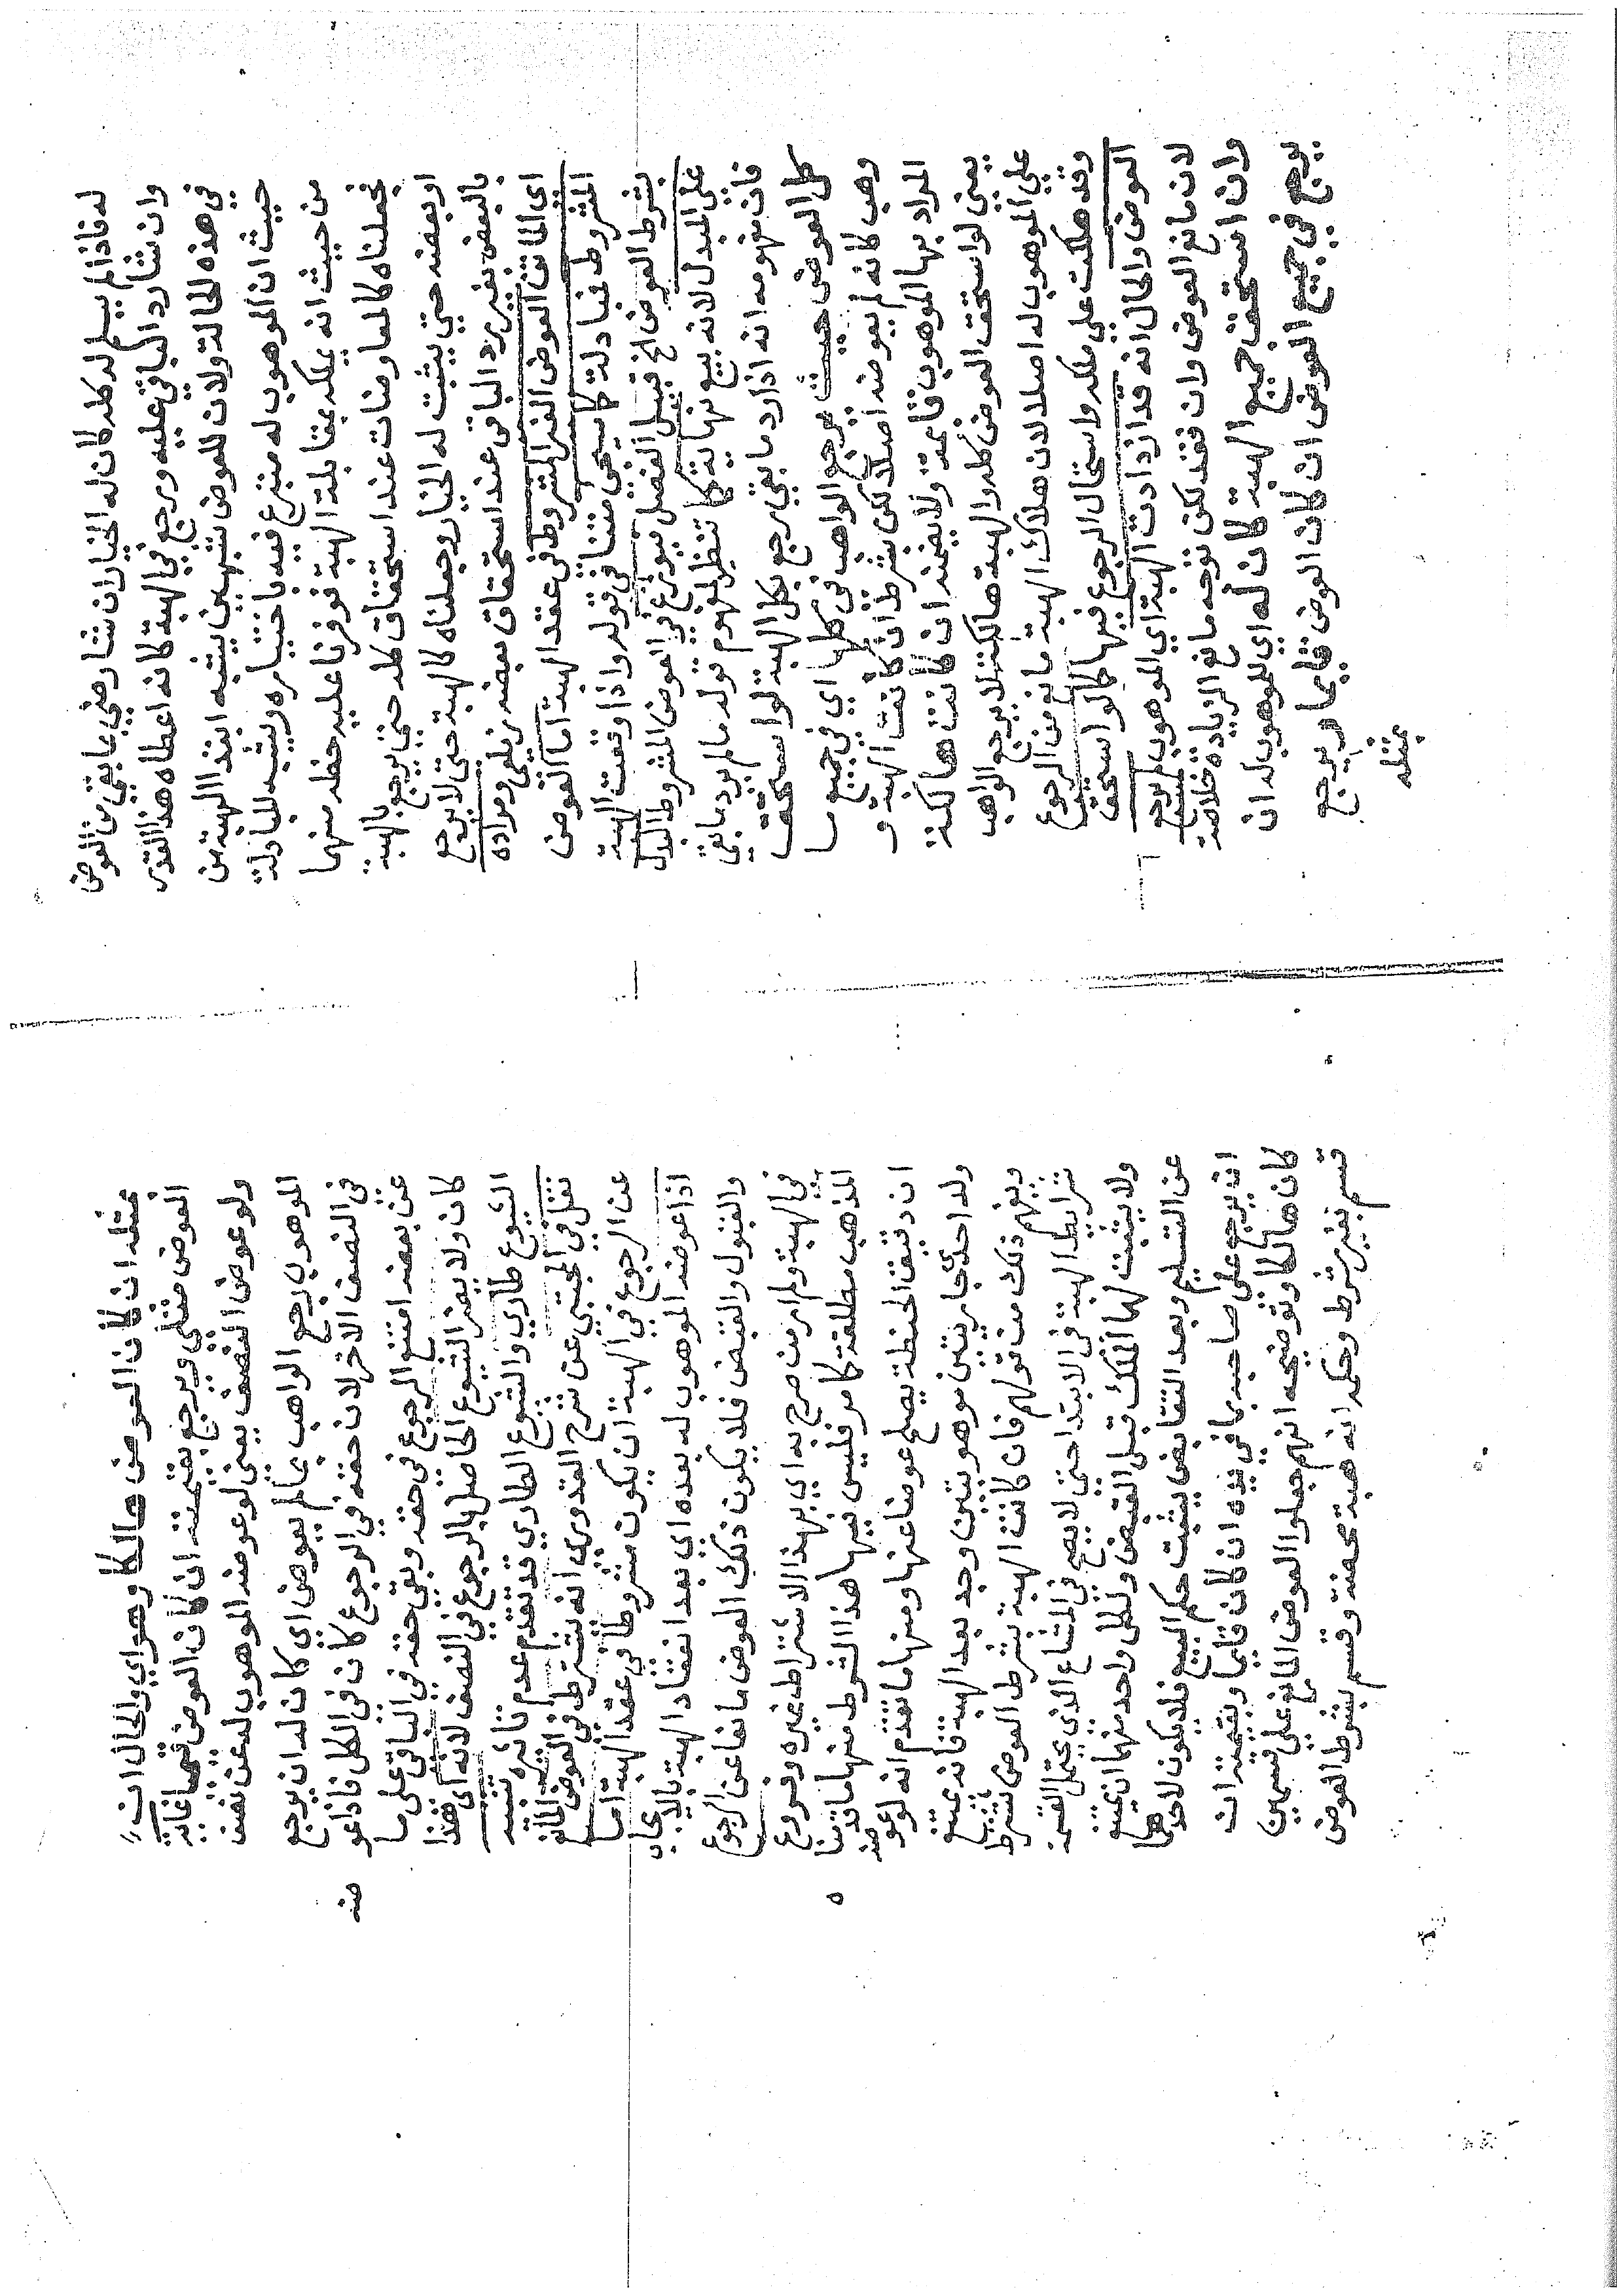 له فاذا لم يسلم له كله كان له الخيار ان شا رضي بما بقي من العوض
وان شا رد الباقي عليه ورجع في الهبة كانه اعطاه هذا القدر
في هذه الحالة ولان للعوض شبهين يشبه ابتدا الهبة من
حيث ان الموهوب له متبرع فيه باختياره ويشبه المبادلة
من حيث انه يملكه بمقابلة الهبة فوفرنا عليه حظه منهما
فجعلناه كالمعاوضات عند استحقاق كله حتي يرجع بالهبة
او بعضه حتي يثبت له الخيار وجعلناه كالهبة حتي لا يرجع
بالبعض بغير رد الباقي عند استحقاق بعضه زيلعي ومراده
اي الماتن العوض الغير المشروط في عقد الهبة اما العوض
المشروط فمبادلة كما سيجي متنا في قوله واذا وقعت الهبة
بشرط العوض الخ قبيل الفصل فيوزع في العوض المشروط البدل
علي المبدل لانه بيع نهاية كما تنظر لمفهوم قوله ما لم يرد ما بقي
فان مفهومه انه اذا رد ما بقي رجع بكل الهبة لو استحق
كل العوض حيث يرجع الواهب في كلها اي في جميع ما
وهب كانه لم يعوضه اصلا لكن بشرط ان كانت الهبة و
المراد بها الموهوب قايمة ولا يضمنه ان كانت هالكة
يعني لو استحق العوض كله والهبة هالكة لا يرجع الواهب
علي الموهوب له اصلا لان هلاك الهبة مانع من الرجوع
وقد هلكت علي ملكه واستحال الرجوع فيها كما لو استحق
العوض والحال انه قد ازدادت الهبة اي الموهوب لم يرجع
لان مانع العوض وان فقد لكن توجه مانع الزيادة خلاصة
وان استحق جميع الهبة كان له اي للموهوب له ان
يرجع في جميع العوض ان كان العوض قايما ويرجع
بمثله
بمثله ان كان العوض هالكا وهو اي والحال ان
العوض مثلي ويرجع بقيمته ان كان العوض قيميا غاية
ولو عوض النصف يعني لو عوضه الموهوب له عن نصف
الموهوب رجع الواهب بما لم يعوض اي كان له ان يرجع
في النصف الاخر لان حقه في الرجوع كان في الكل فاذا عو
ضه
عن بعضه امتنع الرجوع في حقه وبقي حقه في الباقي علي ما
كان ولا يضر الشيوع الحاصل بالرجوع في النصف لانه اي هذا
الشيوع طاري والشيوع الطاري قد تقدم عدم تاثيره تنبيه
نقل في المجتبي عن شرح القدوري انه يشترط في العوض المانع
عن الرجوع في الهبة ان يكون مشروطا في عقد الهبة اما
اذا عوضه الموهوب له بعده اي بعد انعقاد الهبة بالايجاب
والقبول والقبض فلا يكون ذلك العوض مانعا عن الرجوع
في الهبة ولم ار من صرح به اي بهذا الاشتراط غيره وفروع
المذهب مطلقة كما مر فليس فيها هذا الشرط منها ما قدمنا
ان دقيق الحنطة يصلح عوضا عنها ومنها ما تقدم انه لو عوضه
ولد احد جاريتين موهوبتين وجد بعد الهبة فانه يمتنع
ويفهم ذلك من قولهم فان كانت الهبة بشرط العوض يشترط
شرايط الهبة في الابتدا حتي لا يصح في المشاع الذي يحتمل القسمة
ولا يثبت بها الملك قبل القبض ولكل واحد منهما ان يمتنع
عن التسليم وبعد التقابض يثبت حكم البيع فلا يكون لاحدهما
ان يرجع علي صاحبه بما في يده ان كان قايما وبقيمته ان
كان هالكا وتوضيحه انهم جعلوا العوض المانع علي قسمين
قسم بغير شرط وحكمه انه هبة محضة وقسم بشرط العوض